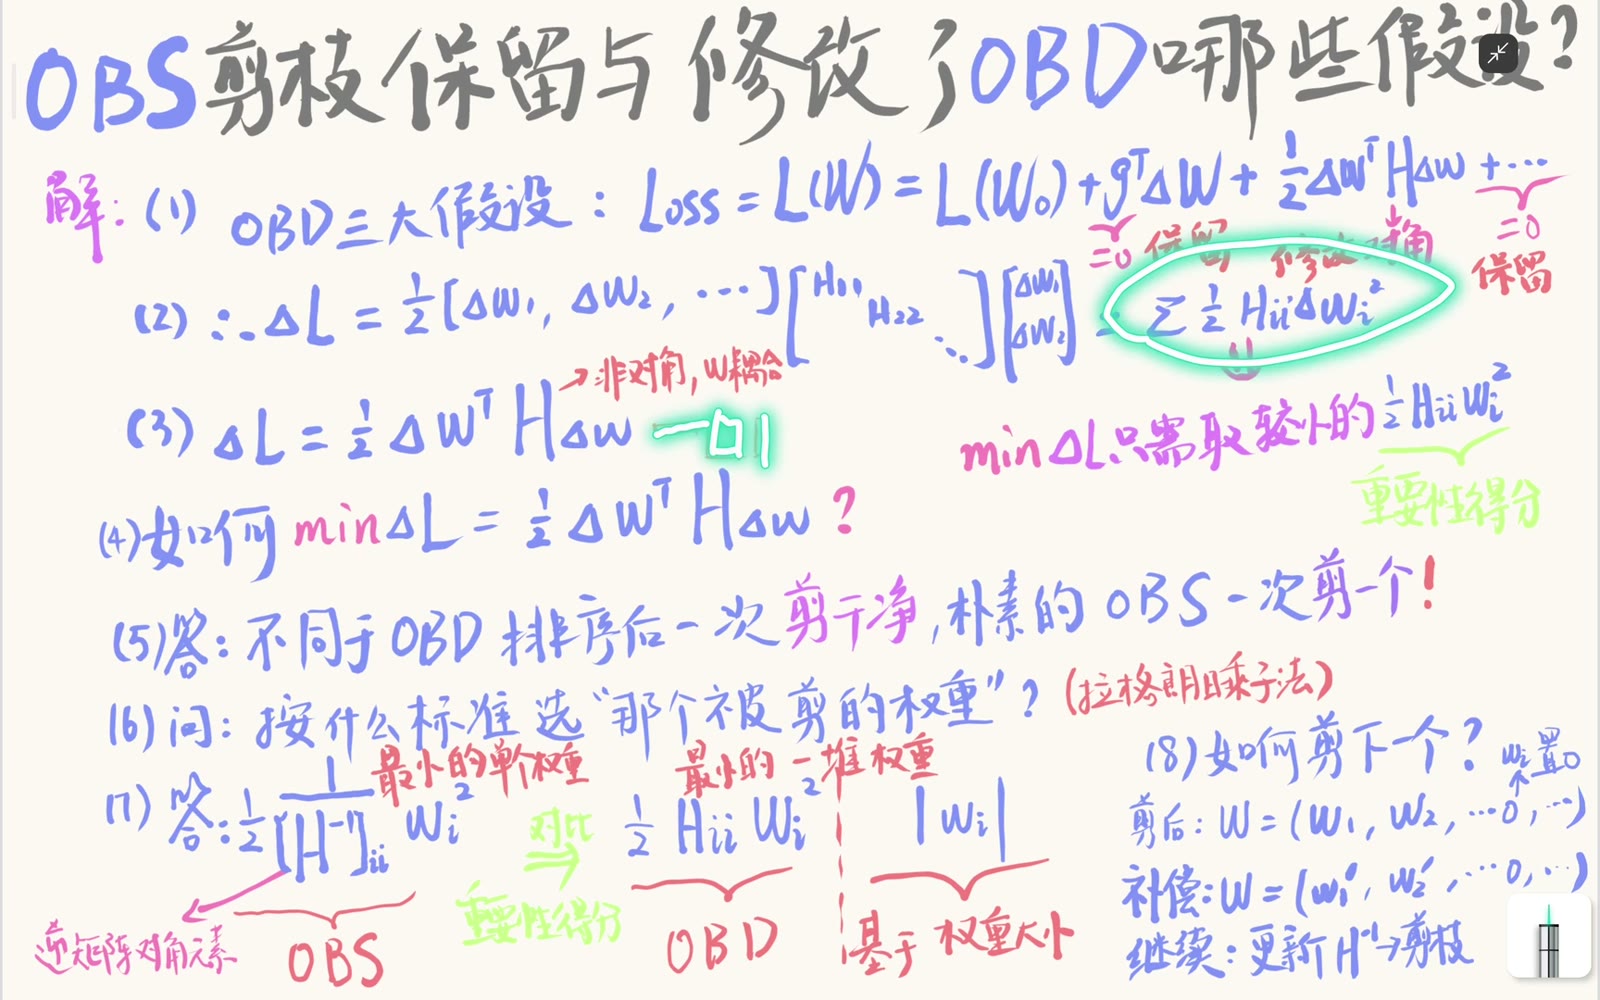 OBS剪枝保留与修改了OBD哪些假设?
解: (1) OBD三大假设: Loss = L(W) = L(W₀) + gᵀΔW + ½ΔWᵀHΔW + ···
=0 保留 修改对角 =0 保留
(2) ∴ΔL = ½[ΔW₁, ΔW₂, ···][H₁₁ H₂₂ ⋱][ΔW₁ ΔW₂] = Σ ½ HᵢᵢΔWᵢ²
→非对角, W耦合
(3) ΔL = ½ ΔWᵀ HΔW
minΔL只需取较小的 ½HᵢᵢWᵢ²
重要性得分
(4) 如何 minΔL = ½ ΔWᵀ HΔW ?
(5) 答: 不同于OBD排序后一次剪干净, 朴素的 OBS一次剪一个!
(6) 问: 按什么标准选“那个被剪的权重”? (拉格朗日乘子法)
最小的单个权重 最小的一堆权重
(7) 答: ½ 1/[H⁻¹]ᵢᵢ Wᵢ² 对比 ⇒ ½ Hᵢᵢ Wᵢ² |Wᵢ|
逆矩阵对角元素 OBS 重要性得分 OBD 基于权重大小
(8) 如何剪下一个? Wᵢ置0
剪后: W = (W₁, W₂, ···0, ···)
补偿: W = (W₁′, W₂′, ···0, ···)
继续: 更新H⁻¹→剪枝